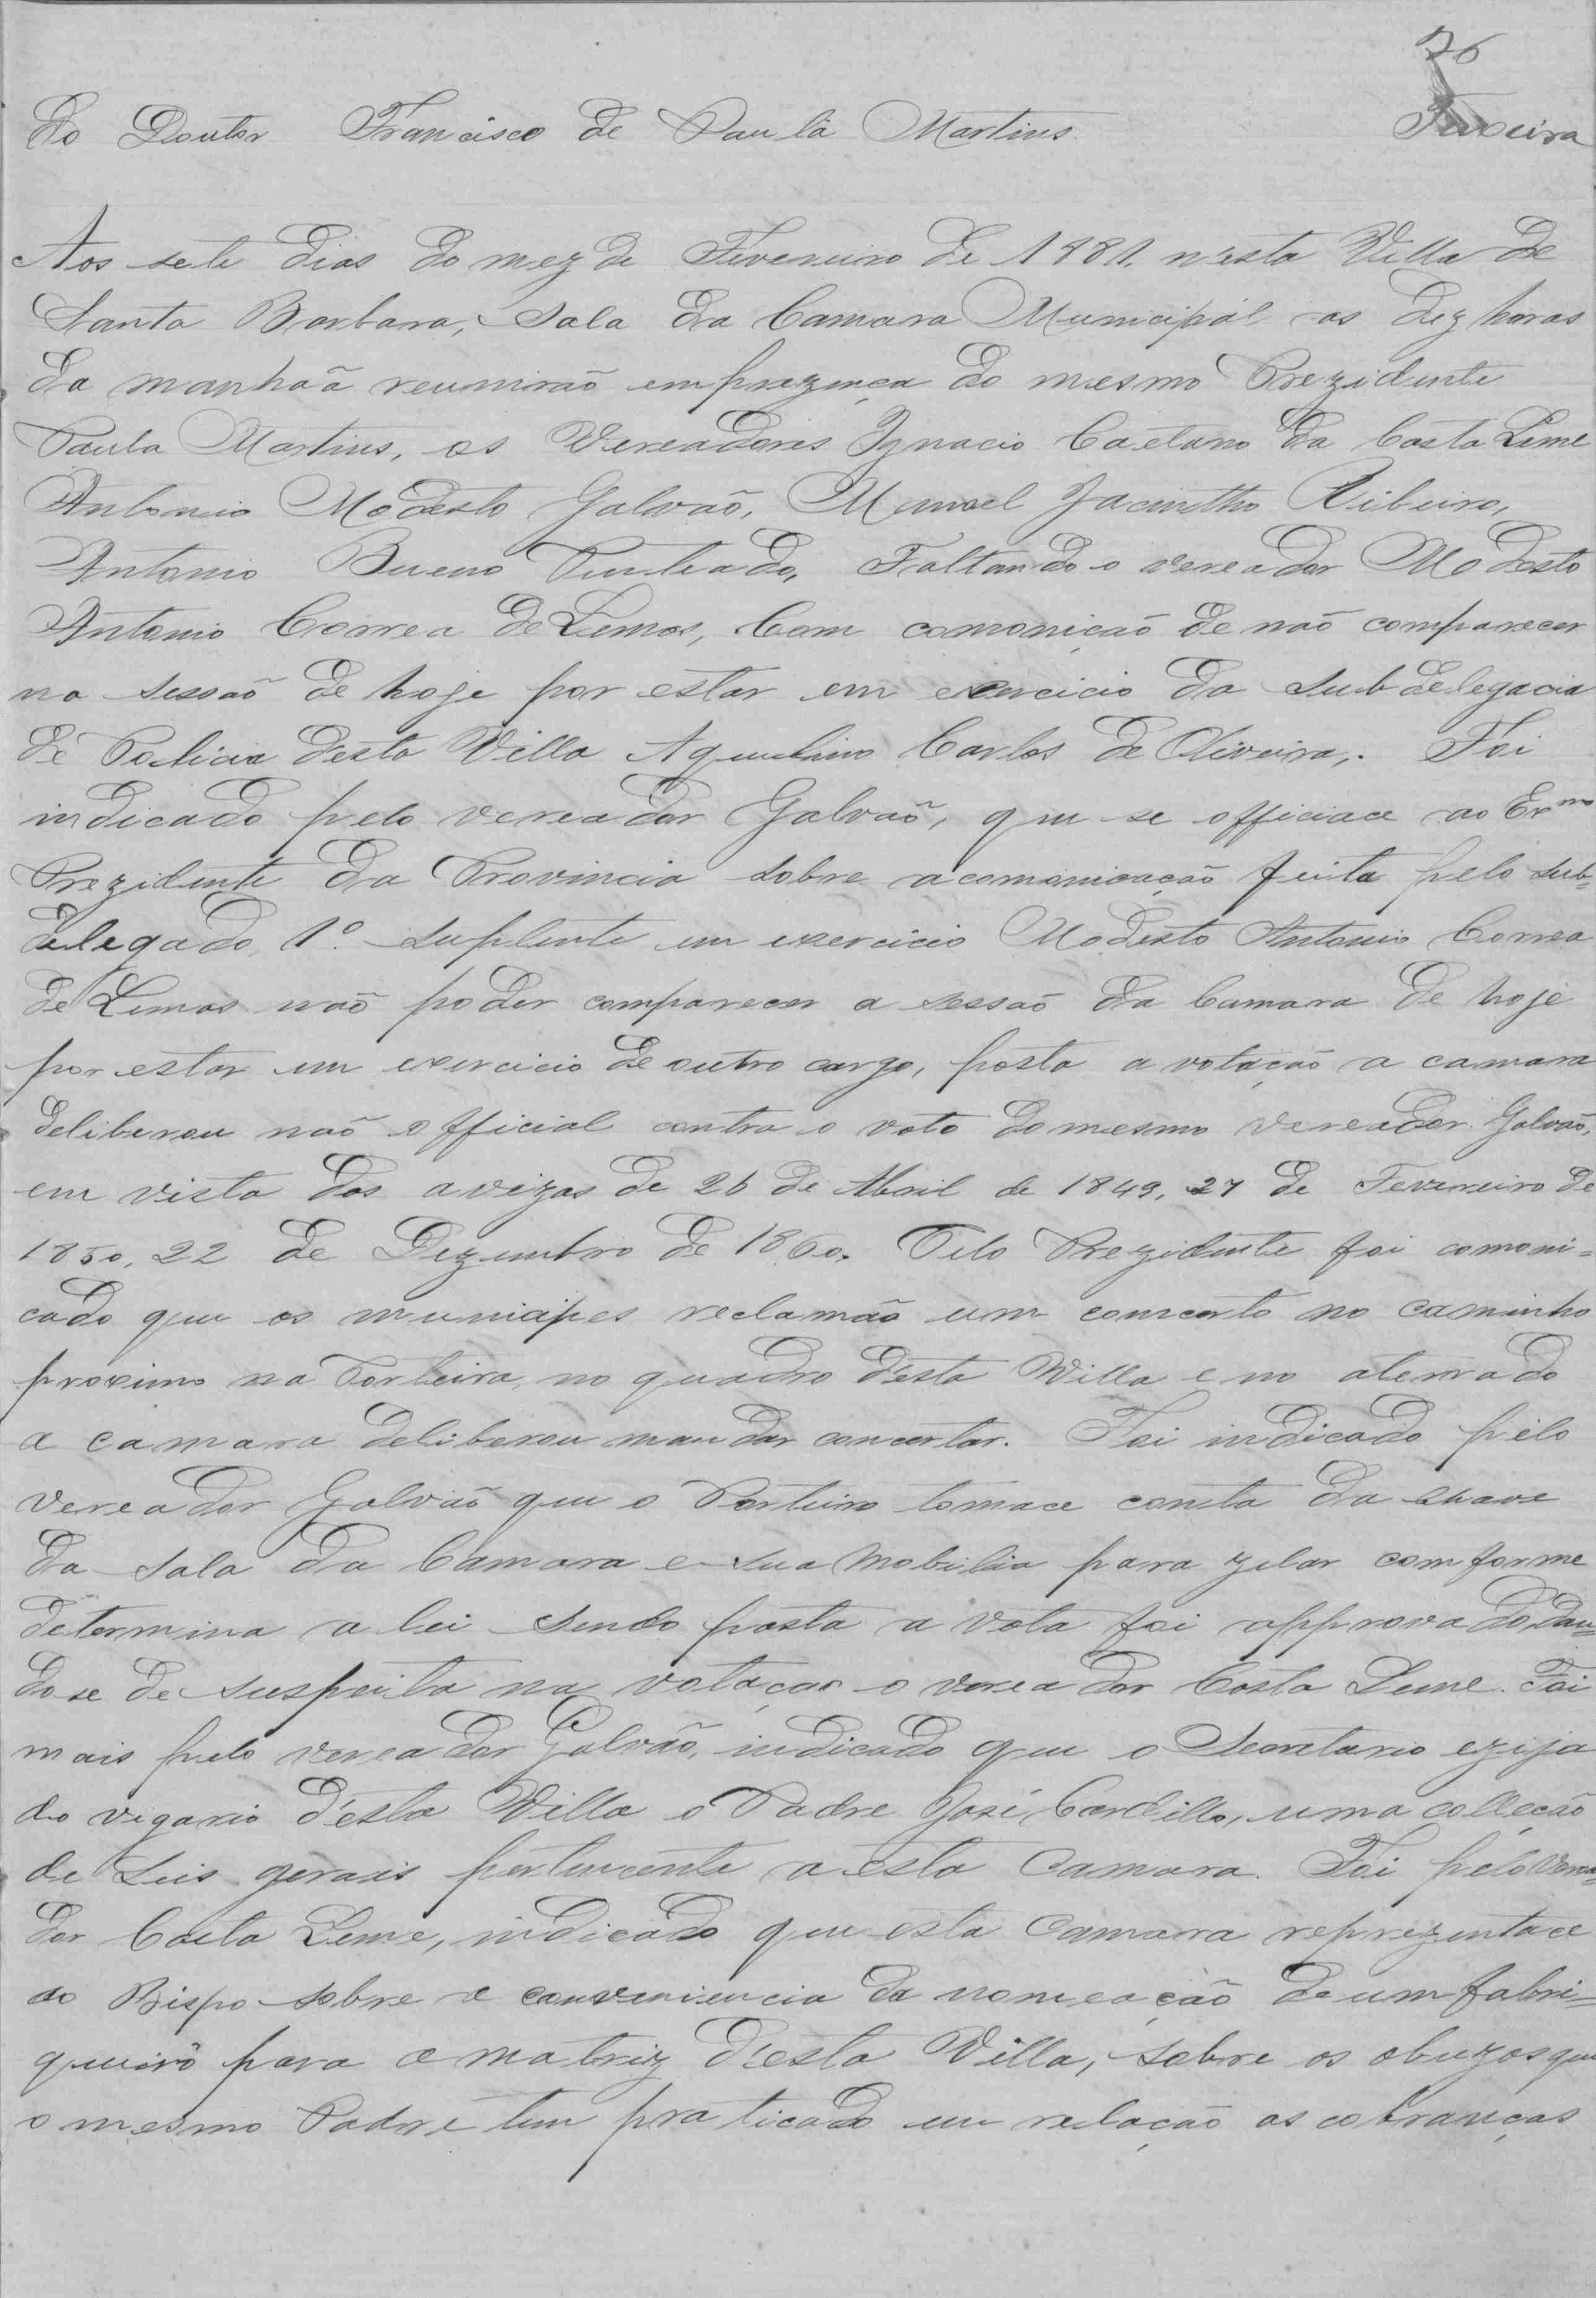 76
Do Doutor Francisco de Paula Martins. Teixeira
Aos sete dias do mez de Fevereiro de 1881. n'esta Villa de
Santa Barbara, Sala da Camara Municipal as dez horas
da manhaã reunirão em prezença do mesmo Prezidente
Paula Martins, os Vereadores Ignacio Caetano da Costa Leme
Antonio Modesto Galvaõ, Manoel Jacintho Ribeiro,
Antonio Bueno Penteado, Faltando o vereador Modesto
Antonio Correa de Lemos, Com comonicaõ de naõ comparecer
na sessaõ de hoje por estar em exercicio da Subdelegacia
de Policia desta Villa Aquilino Carlos de Oliveira,. Foi
indicado pelo vereador Galvaõ, que se officiace ao Ex.mo
Prezidente da Provincia sobre a comonicação feita pelo sub=
delegado, 1º suplente em exercicio Modesto Antonio Correa
de Lemos naõ poder comparecer a sessaõ da Camara de hoje
por estar em exercicio de outro cargo, posto a votação a camara
deliberou naõ official contra o voto do mesmo vereador Galvaõ,
em vista dos avizos de 26 de Abril de 1849, 27 de Fevereiro de
1850, 22 de Dezembro de 1860. Pelo Prezidente foi comoni=
cado que os municipes reclamão um concerto no caminho
proximo na Porteira, no quadro d'esta Villa e no aterrado
a camara deliberou mandar concertar. Foi indicado pelo
vereador Galvaõ que o Porteiro tomace conta da chave
da Sala da Camara e sua mobilia para zelar comforme
determina a lei sendo posta a vota foi approvado, dan=
dose de suspeito na votaçaõ o vereador Costa Leme. Foi
mais pelo vereador Galvão, indicado que o Secretario ezija
do vigario d'esta Villa o Padre José Cardillo, uma colleção
de Leis gerais pertencente a esta Camara. Foi pelo Verea=
dor Costa Leme, indicado que esta Camara reprezentace
ao Bispo sobre a conveniencia da nomeação de um fabri=
queiro para a matriz d'esta Villa, sobre os abuzos que
o mesmo Padre tem praticado em relação as cobranças